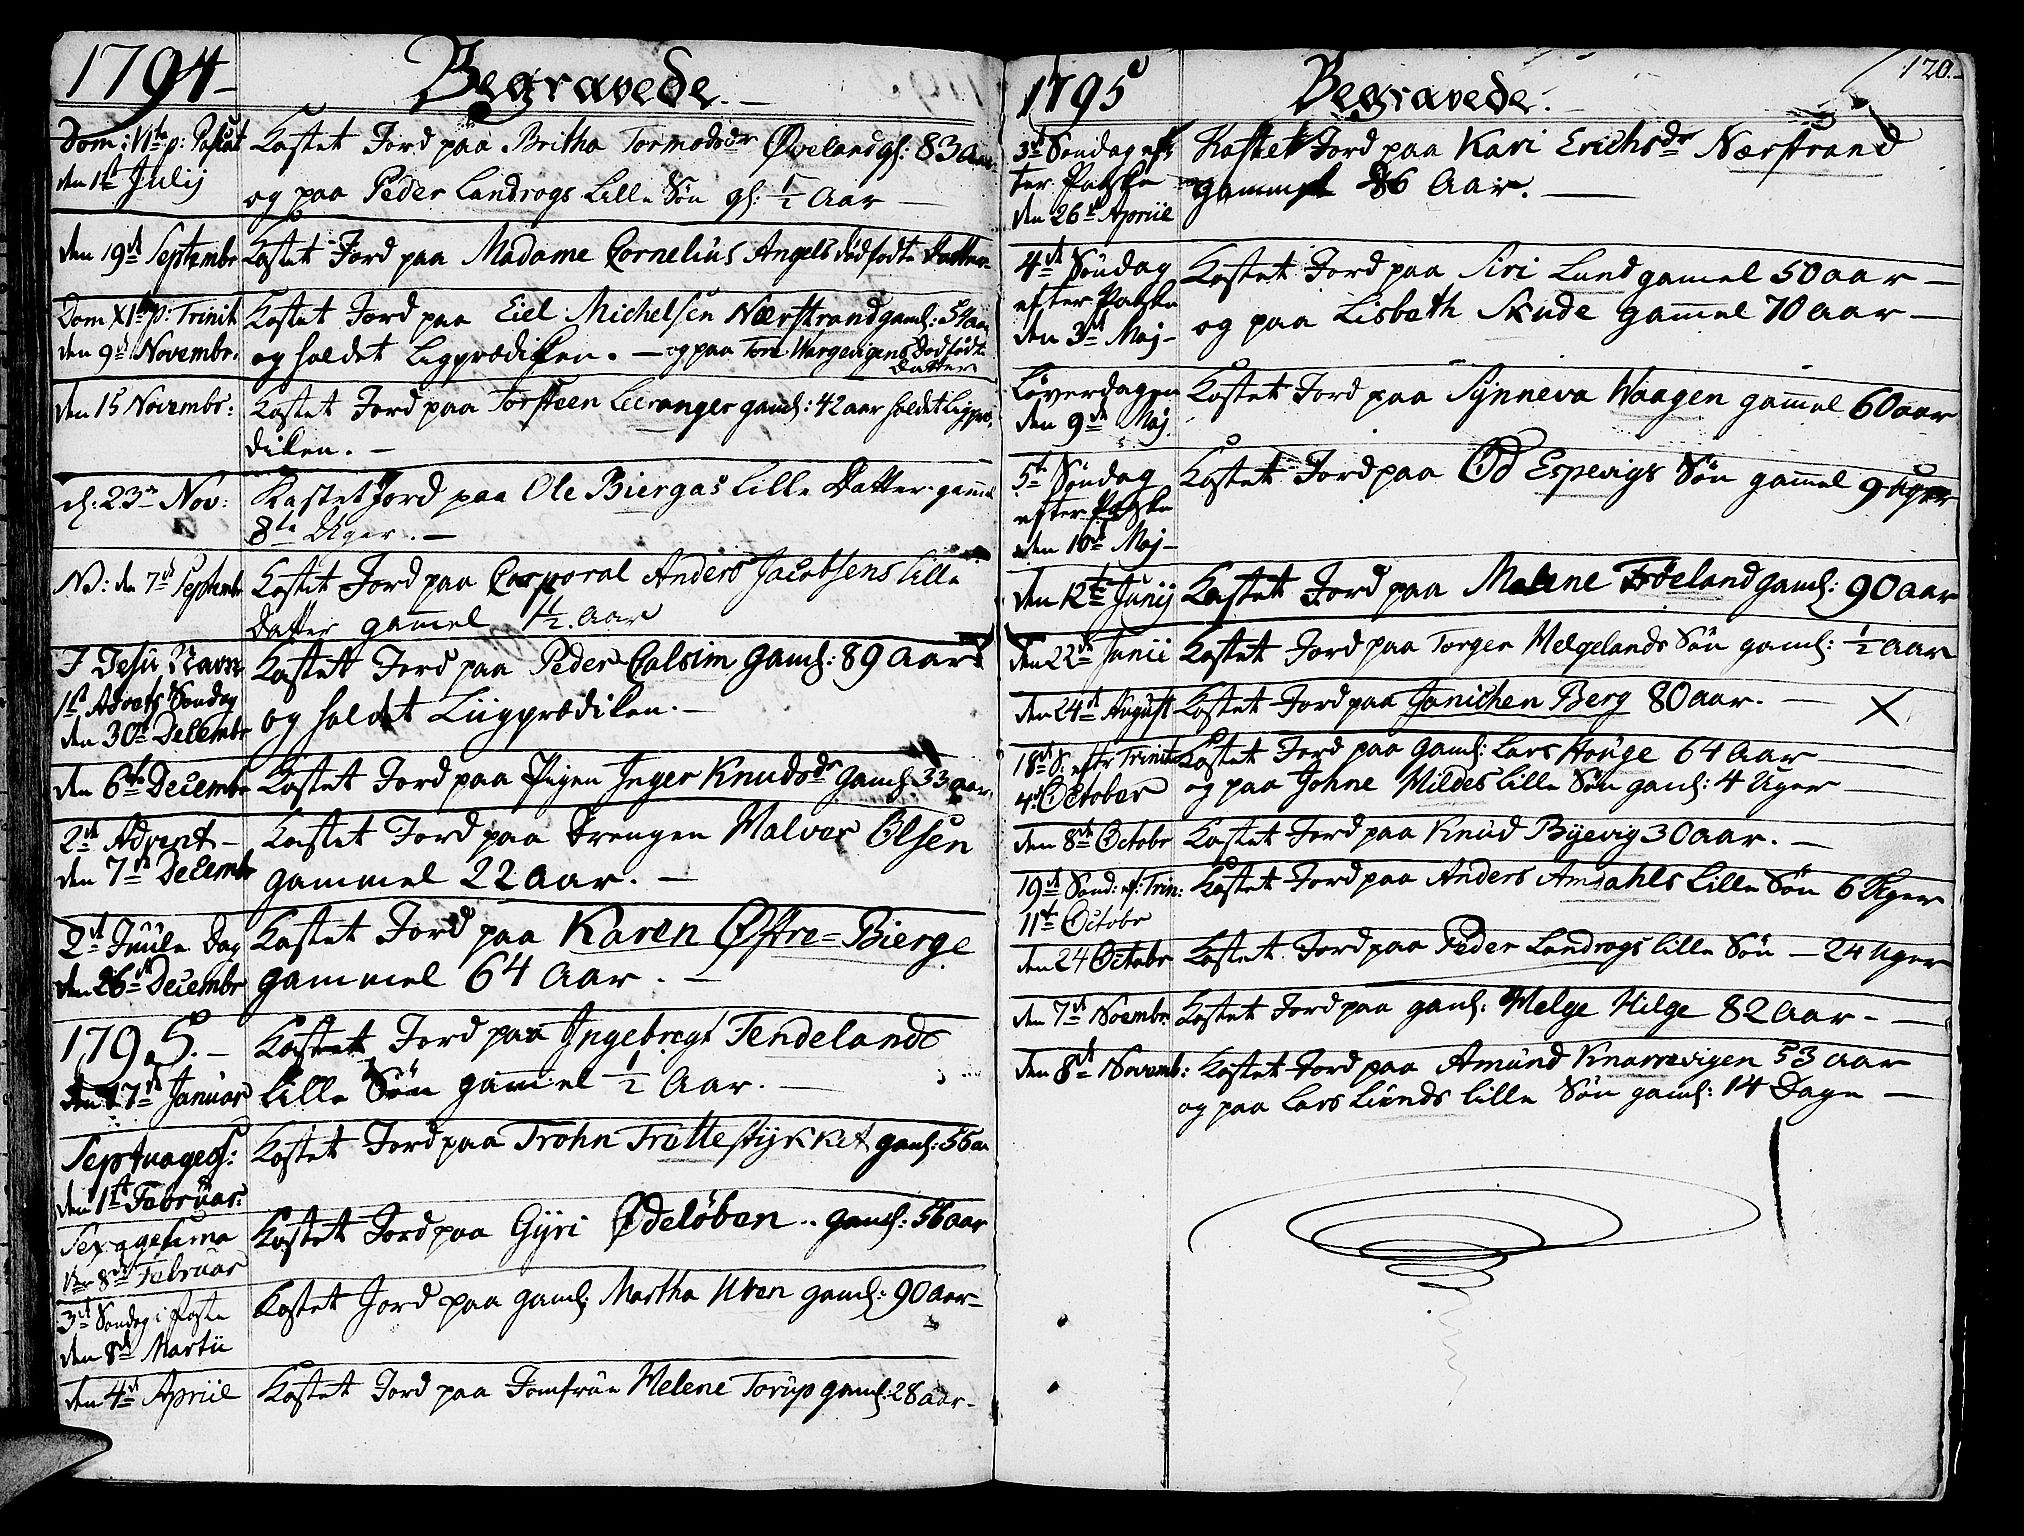 1794
Begravede.
Dom: VI p: Pascat
den 1st Julij
Kastet Jord paa Britha Tormodsdr Øveland gl: 83 aar
og paa Peder Landrogs Lille Søn gl: ½ Aar
den 19de Septembr
Kastet Jord paa Madame Cornelius Angels dødfødte Datter
Dom XI p: Trinit
den 9de Novembr.
Kastet Jord paa Eiel Michelsen Nærstrand gaml: 54 aar
og holdet Ligprædiken. — og paa Tore Wargevigens Dødfødte
Datter
den 15 Novembr:
Kastet Jord paa Torsteen Leeranger gaml: 42 aar holdet Ligpræ-
diken. —
d: 23de Nov:
Kastet Jord paa Ole Biergas Lille Datter gaml
8te Uger. —
NB: den 7de Septembr
Kastet Jord paa Corporal Anders Jacobsens Lille
Datter gammel 1½ Aar
I Jesu Navn
1st Advets Søndag
den 30te Decembr
Kastet Jord paa Peder Calsim gaml: 89 Aar
og holdet Liigprædiken. —
den 6te Decembr
Kastet Jord paa Pigen Inger Knudsdr gaml: 33 aar.
2de Advent —
den 7de Decembr
Kastet Jord paa Drengen Halvor Olsen
gammel 22 aar. —
2de Juule Dag
den 26de Decembr
Kastet Jord paa Karen Østre-Bierge
gammel 64 Aar. —
1795. —
den 17de Januar
Kastet Jord paa Ingebregt Tendelands
Lille Søn gammel ½ Aar. —
Septuages:
den 1st Februar:
Kastet Jord paa Trohn Trættestykket gaml: 55 aar
Sexagesima
den 8de Februar
Kastet Jord paa Gyri Ødeløben .. gaml: 56 aar
3de Søndag i Faste
den 8de Martii
Kastet Jord paa gaml: Martha Hven gaml: 90 aar —
den 4de Apriil
Kastet Jord paa Jomfrue Helene Torup gaml: 28 aar —
1795
Begravede.
120.
3de Søndag ef-
ter Paaske
den 26de Apriil
Kastet Jord paa Kari Erichsdr Nærstrand
gammel 86 Aar. —
4de Søndag
efter Paaske
den 3de Maj —
Kastet Jord paa Siri Lund gamel 50 aar —
og paa Lisbeth Skude gammel 70 aar —
Løverdagen
den 9de Maj
Kastet Jord paa Synneva Waagen gammel 60 aar
5te Søndag
efter Paaske
den 10de Maj —
Kastet Jord paa Od Espevigs Søn gammel 9 Uger
den 12te Junij
Kastet Jord paa Malene Frøeland gaml: 90 aar
den 22de Junii
Kastet Jord paa Torger Helgelands Søn gaml: ½ Aar
den 24de August
Kastet Jord paa Janichen Berg 80 aar. — X
18de S. eftr Trinit
4de October
Kastet Jord paa gaml: Lars Houge 64 Aar —
og paa Johne Hildes Lille Søn gaml: 4 Uger —
den 8de Octobr
Kastet Jord paa Knud Byevig 30 aar. —
19de Sønd: ef: Trin:
11te Octobr
Kastet Jord paa Anders Amdahls Lille Søn 6 Uger
den 24 Octobr
Kastet Jord paa Peder Landrogs Lille Søn — 24 Uger
den 7de Novembr.
Kastet Jord paa gaml: Helge Hilge 82 Aar — —
den 8de Novemb:
Kastet Jord paa Amund Knarrevigen 53 aar
og paa Lars Lunds Lille Søn gaml: 14 Dage —